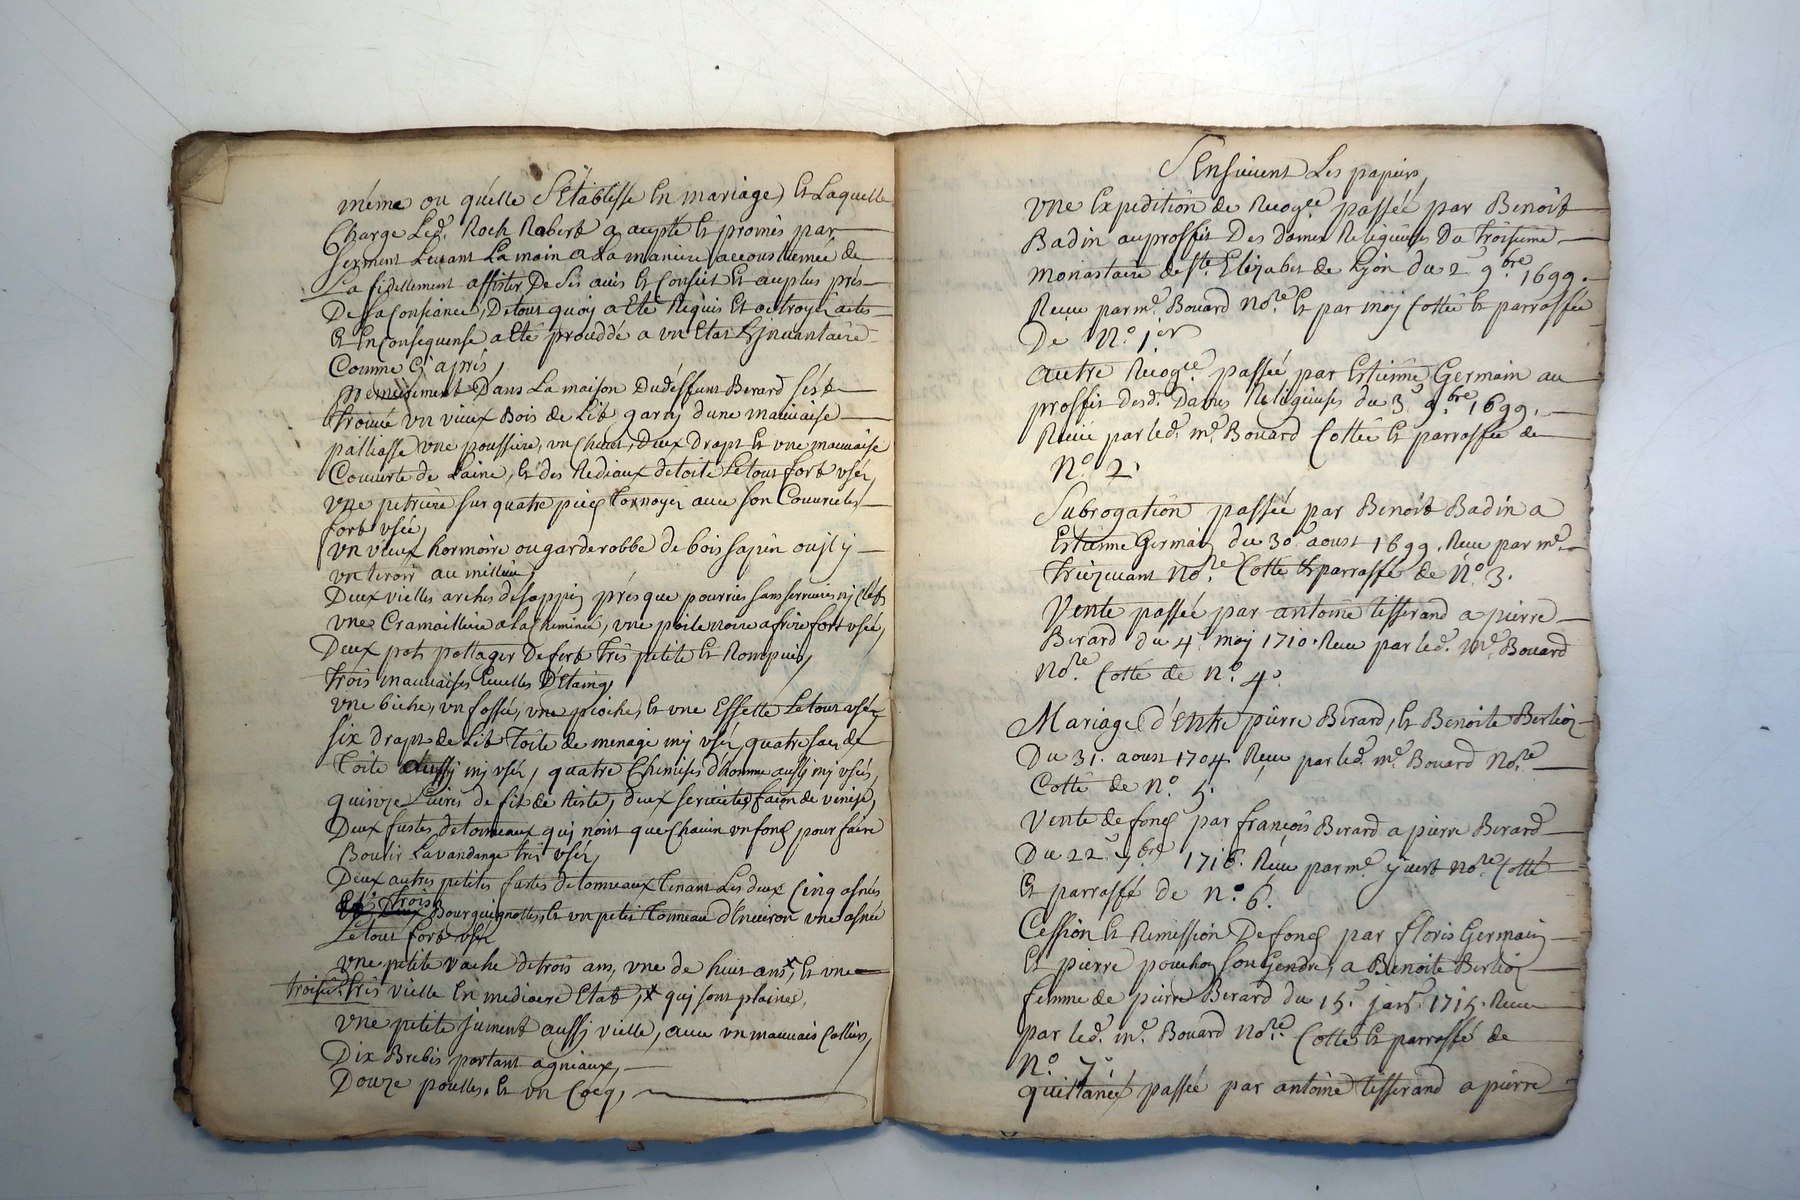 même ou qu'elle S'Etablisse En mariage, Et Laquelle
Charge Led. Roch Robert a accepté Et promis par
Serment Levant La main a La maniere accoustumée de
La fidellement assister De Ses avis Et Conseil Et au plus prés
De Sa Consiance, De tout quoy a Eté Requis Et octroyé actes
Et En Consequense a Eté proceddé a un Etat Et Jnvantaire
Comme Cy aprés,
Premierement Dans La maison Dudeffunt Berard S'est
trouvé un vieux Bois de Lit garny d'une mauvaise
palliasse une poussiere, un Chalit, Deux Drapt Et une mauvaise
Couverte de Laine, Et des Redeaux de toile Le tout fort usér,
une petriere sur quatre pieds tornoyer avec son Couvercles
fort usée,
un vieux hormoire ou garderobbe de bois sapin ou jl y
un tiroir au millieu,
Deux vielles arches de sappin présque pourries sans serrures nj Clefs
une Cramailliere a la Cheminée, une poile noire a frire fort usée,
Deux pots pottager De fert trés petits Et Rompues,
trois mauvaises Ecuelles D'Etaing,
une biche, un fossé, une pioche, Et une Essette Le tout usér
six drapt de Lit toile de menage mj usér, quatre sac de
toile aussy mj usér, quatre Chemises d'homme aussy mj usées,
quinze Livres de fil de Riste, deux serviettes façon de venise,
Deux fustes, de tonneaux quj n'ont que Chacun un fond pour faire
Boulir La vandange trés usér,
Deux autres petites fustes de tonneaux tenant Les deux Cinq asnées
trois
Bourguignottes, Et un petit tonneau d'Environ une asnée
Le tout fort usér
une petite vache de trois ans, une de huit ans, Et une
troisie. trés vielle En mediocre Etat, x quj sont plaines,
une petite jument aussy vielle, avec un mauvais Collier,
Dix Brebis portant agniaux,
Douze poulles, Et un Cocq,
S'Ensuivent Les papiers,
Une Expedition de Recogce passée par Benoit
Badin au proffit Des dames Religieuses Du troisieme
monastaire de Ste Elizabet de Lyon du 2 9bre 1699.
Receu par me. Bouard Nore. Et par moj Cotté Et parraffée
De N.º 1er
Autre Recogce passée par Estienne Germain au
proffit desd. Dames Religieuses du 3 9bre 1699.
Receu par led. me. Bouard Cottée Et parraffée de
N.º 2.
Subrogation passée par Benoit Badin a
Estienne Germain du 30 aoust 1699. Receu par me.
Nore Cotté Et parraffé de N.º 3.
Vente passée par antoine tisserand a pierre
Berard du 4. maj 1710. Receu par led. me. Bouard
Nore. Cotté de N.º 4.
Mariage d'Entre pierre Berard, Et Benoite Berlioz
Du 31. aoust 1704. Receu par led. me. Bouard Nore.
Cotté de N.º 5.
Vente de fond par françois Berard a pierre Berard
Du 22. 7bre 1716. Receu par me. yvert Nore. Cotté
Et parraffé de N.º 6.
Cession Et Remission De fond par floris Germain
Et pierre pouchoy son Gendre, a Benoite Berlioz
femme de pierre Berard du 15. janr. 1715. Receu
par led. me. Bouard Nore. Cotté Et parraffé de
N.º 7.
quittance passée par antoine tisserand a pierre